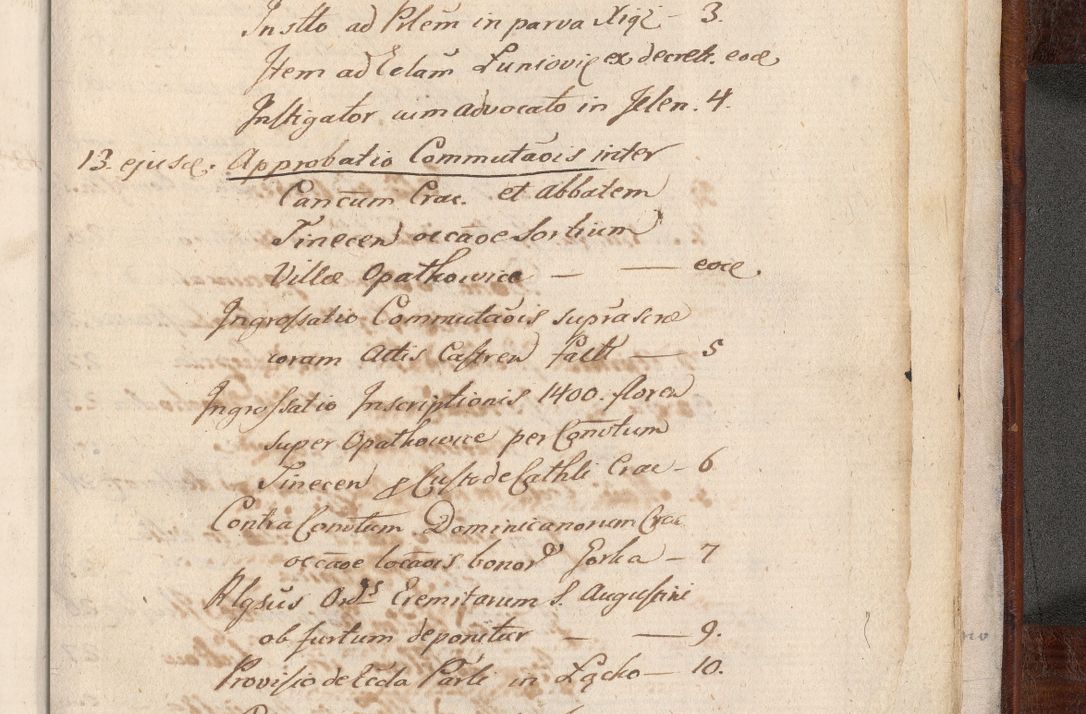 Instto ad Prlem in parva Xigi – 3.
Item ad Eclam Luniovie ex decreti. eod.
Instigator cum advocato in Jelen. 4.
13. ejusd. Approbatio Commutaois inter
Cancum Crac. et Abbatem
Tinecen occãoe Sortium
Villæ Opatkowice — — eod.
Ingrossatio Commutaõis suprascræ
coram Actis Castren factt — 5
Ingrossatio Inscriptionis 1400. floren
super Opatkowice per Convtum
Tinecen p Custode Cathli Crac – 6
Contra Convtum Dominicanorum Crac
occãoe locãois bonor Gorka – 7
Algsus Ords Eremitarum S. Augustini
ob furtum deponitur — — 9.
Provisio de Eccla Parli in Łącko — 10.